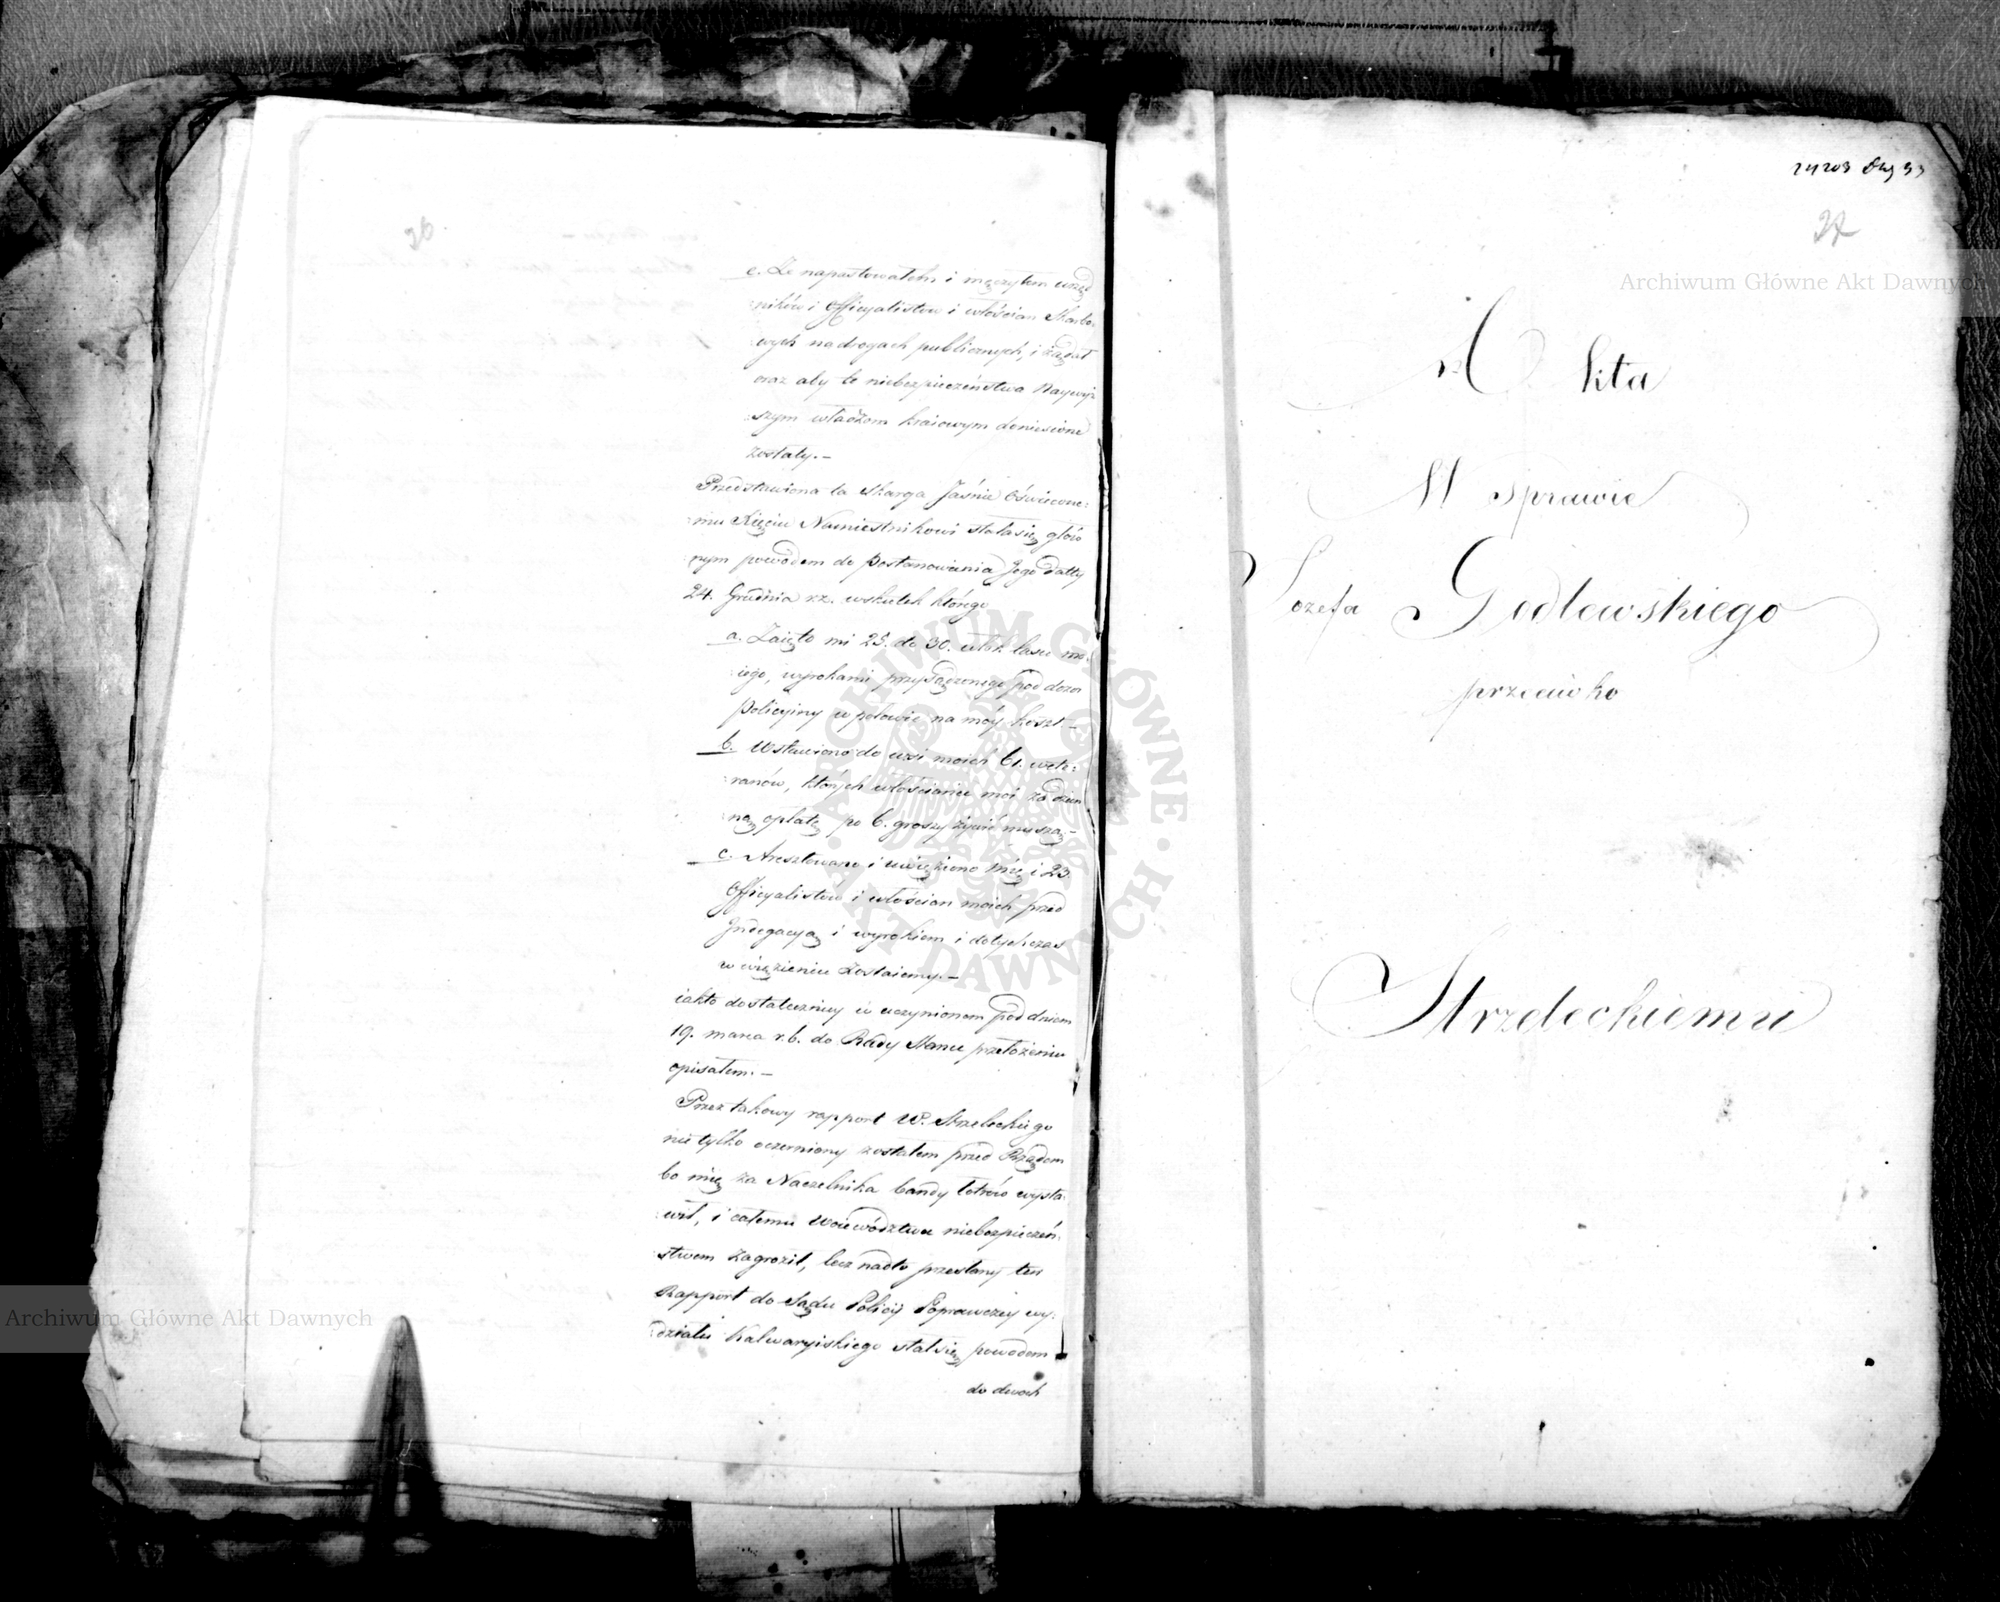 36
e. Że napastowałem i męczyłem urzęd
ników i Officyalistów i włościan Skarbo:
:wych na drogach publicznych, i żądał
oraz aby te niebezpieczeństwa Naywyż
:szym władzom kraiowym doniesione
zostały.—
Przedstawiona ta skarga Jaśnie Oświecone:
:mu Xięciu Namiestnikowi stała się głów
:nym powodem do Postanowienia Jego datty
24. Grudnia r.z. wskutek którego
a. Zaięto mi 25. do 30. włok lasu mo:
:iego, wyrokami przysądzonego pod dozor
Policyiny w połowie na móy koszt.—
b. Wstawiono do wsi moich 61. wete:
:ranów, których włościanie moi za dzien
:ną opłatę po 6. groszy żywić muszą.—
c. Aresztowano i uwięziono mię i 23.
Officyalistów i włościan moich przed
Indegacyą i wyrokiem i dotychczas
w więzieniu zostaiemy.—
iak to dostateczniey w uczynionem pod dniem
19. marca r.b. do Rady Stanu przełożeniu
opisałem.—
Przez takowy rapport W. Strzeleckiego
nie tylko oczerniony zostałem przed Rządem
bo mię za Naczelnika bandy łotrów wysta:
:wił, i całemu Woiewództwu niebezpieczeń:
:stwem zagroził, lecz nadto przesłany ten
Rapport do Sądu Policyi Poprawczey wy:
:działu Kalwaryiskiego stał się powodem
do dwoch
24203
37
Akta
W sprawie
Jozefa Godlewskiego
przeciwko
Strzeleckiemu
Archiwum Główne Akt Dawnych
Archiwum Główne Akt Dawnych
· ARCHIWUM GŁÓWNE · AKT DAWNYCH